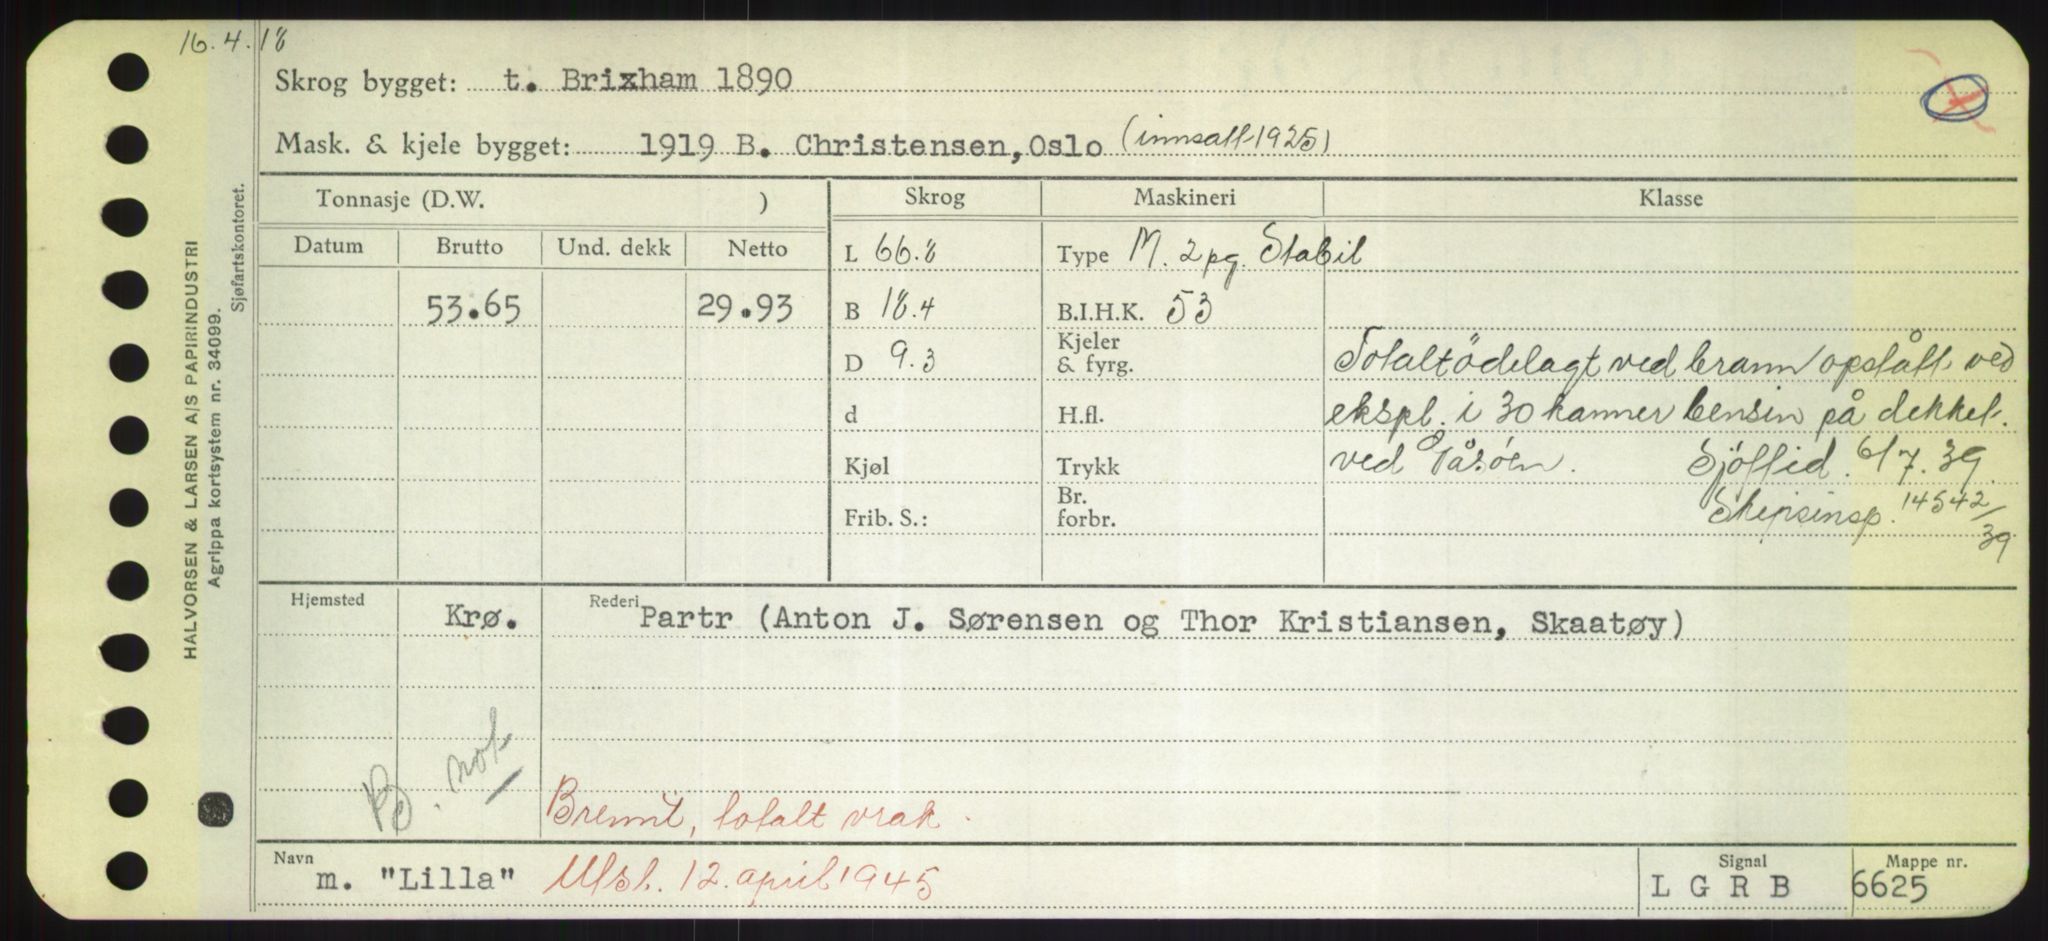 16.4.18
Skrog bygget: t. Brixham 1890
Mask. & kjele bygget: 1919 B. Christensen,Oslo (innsatt 1925)
Tonnasje (D.W. ) Skrog Maskineri Klasse
Datum Brutto Und. dekk Netto L 66.8 Type M. 2 pg. Stabil
53.65 29.93 B 18.4 B.I.H.K. 53
D 9.3 Kjeler & fyrg. Totaltödelagt ved brann opstått ved
d H.fl. ekspl. i 30 kanner bensin på dekket.
Kjøl Trykk ved Gåsöen. Sjöftid. 6/7.39.
Frib. S.: Br. forbr. Skipsinsp. 14542/39
Hjemsted Krø. Rederi Partr (Anton J. Sørensen og Thor Kristiansen, Skaatøy)
not
Brennt, totalt vrak.
Navn m. "Lilla" Utsl. 12. april 1945 Signal L G R B Mappe nr. 6625
HALVORSEN & LARSEN A/S PAPIRINDUSTRI
Agrippa kortsystem nr. 34099.
Sjøfartskontoret.